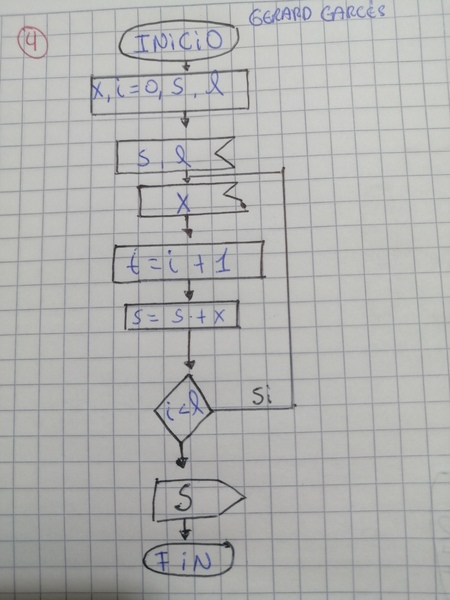 GERARD GARCÉS
4
INiCiO
x, i = 0, s, l
s, l
x
t = i + 1
s = s + x
i < l
Si
S
FiN